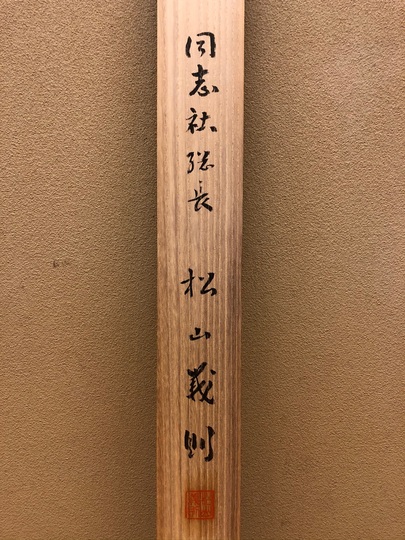 同志社総長 松山義則